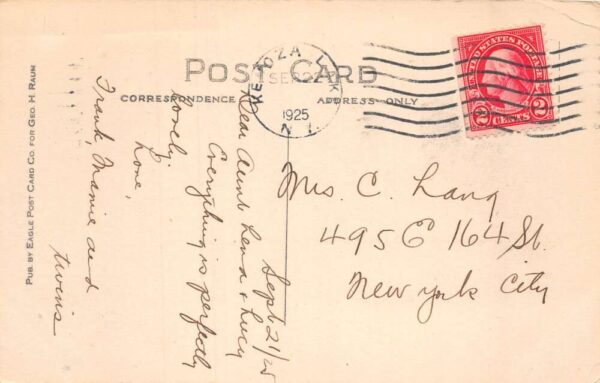 POST CARD
CORRESPONDENCE
ADDRESS ONLY
1925
UNITED STATES POSTAGE
2 CENTS 2
PUB. BY EAGLE POST CARD CO. FOR GEO. H. RAUM
Sept 21/25
Dear Aunt Lena & Lucy
Everything is perfectly
lovely.
Love,
Frank, Mamie and
twins
Mrs. C. Lang
495 E 164 St.
New York City